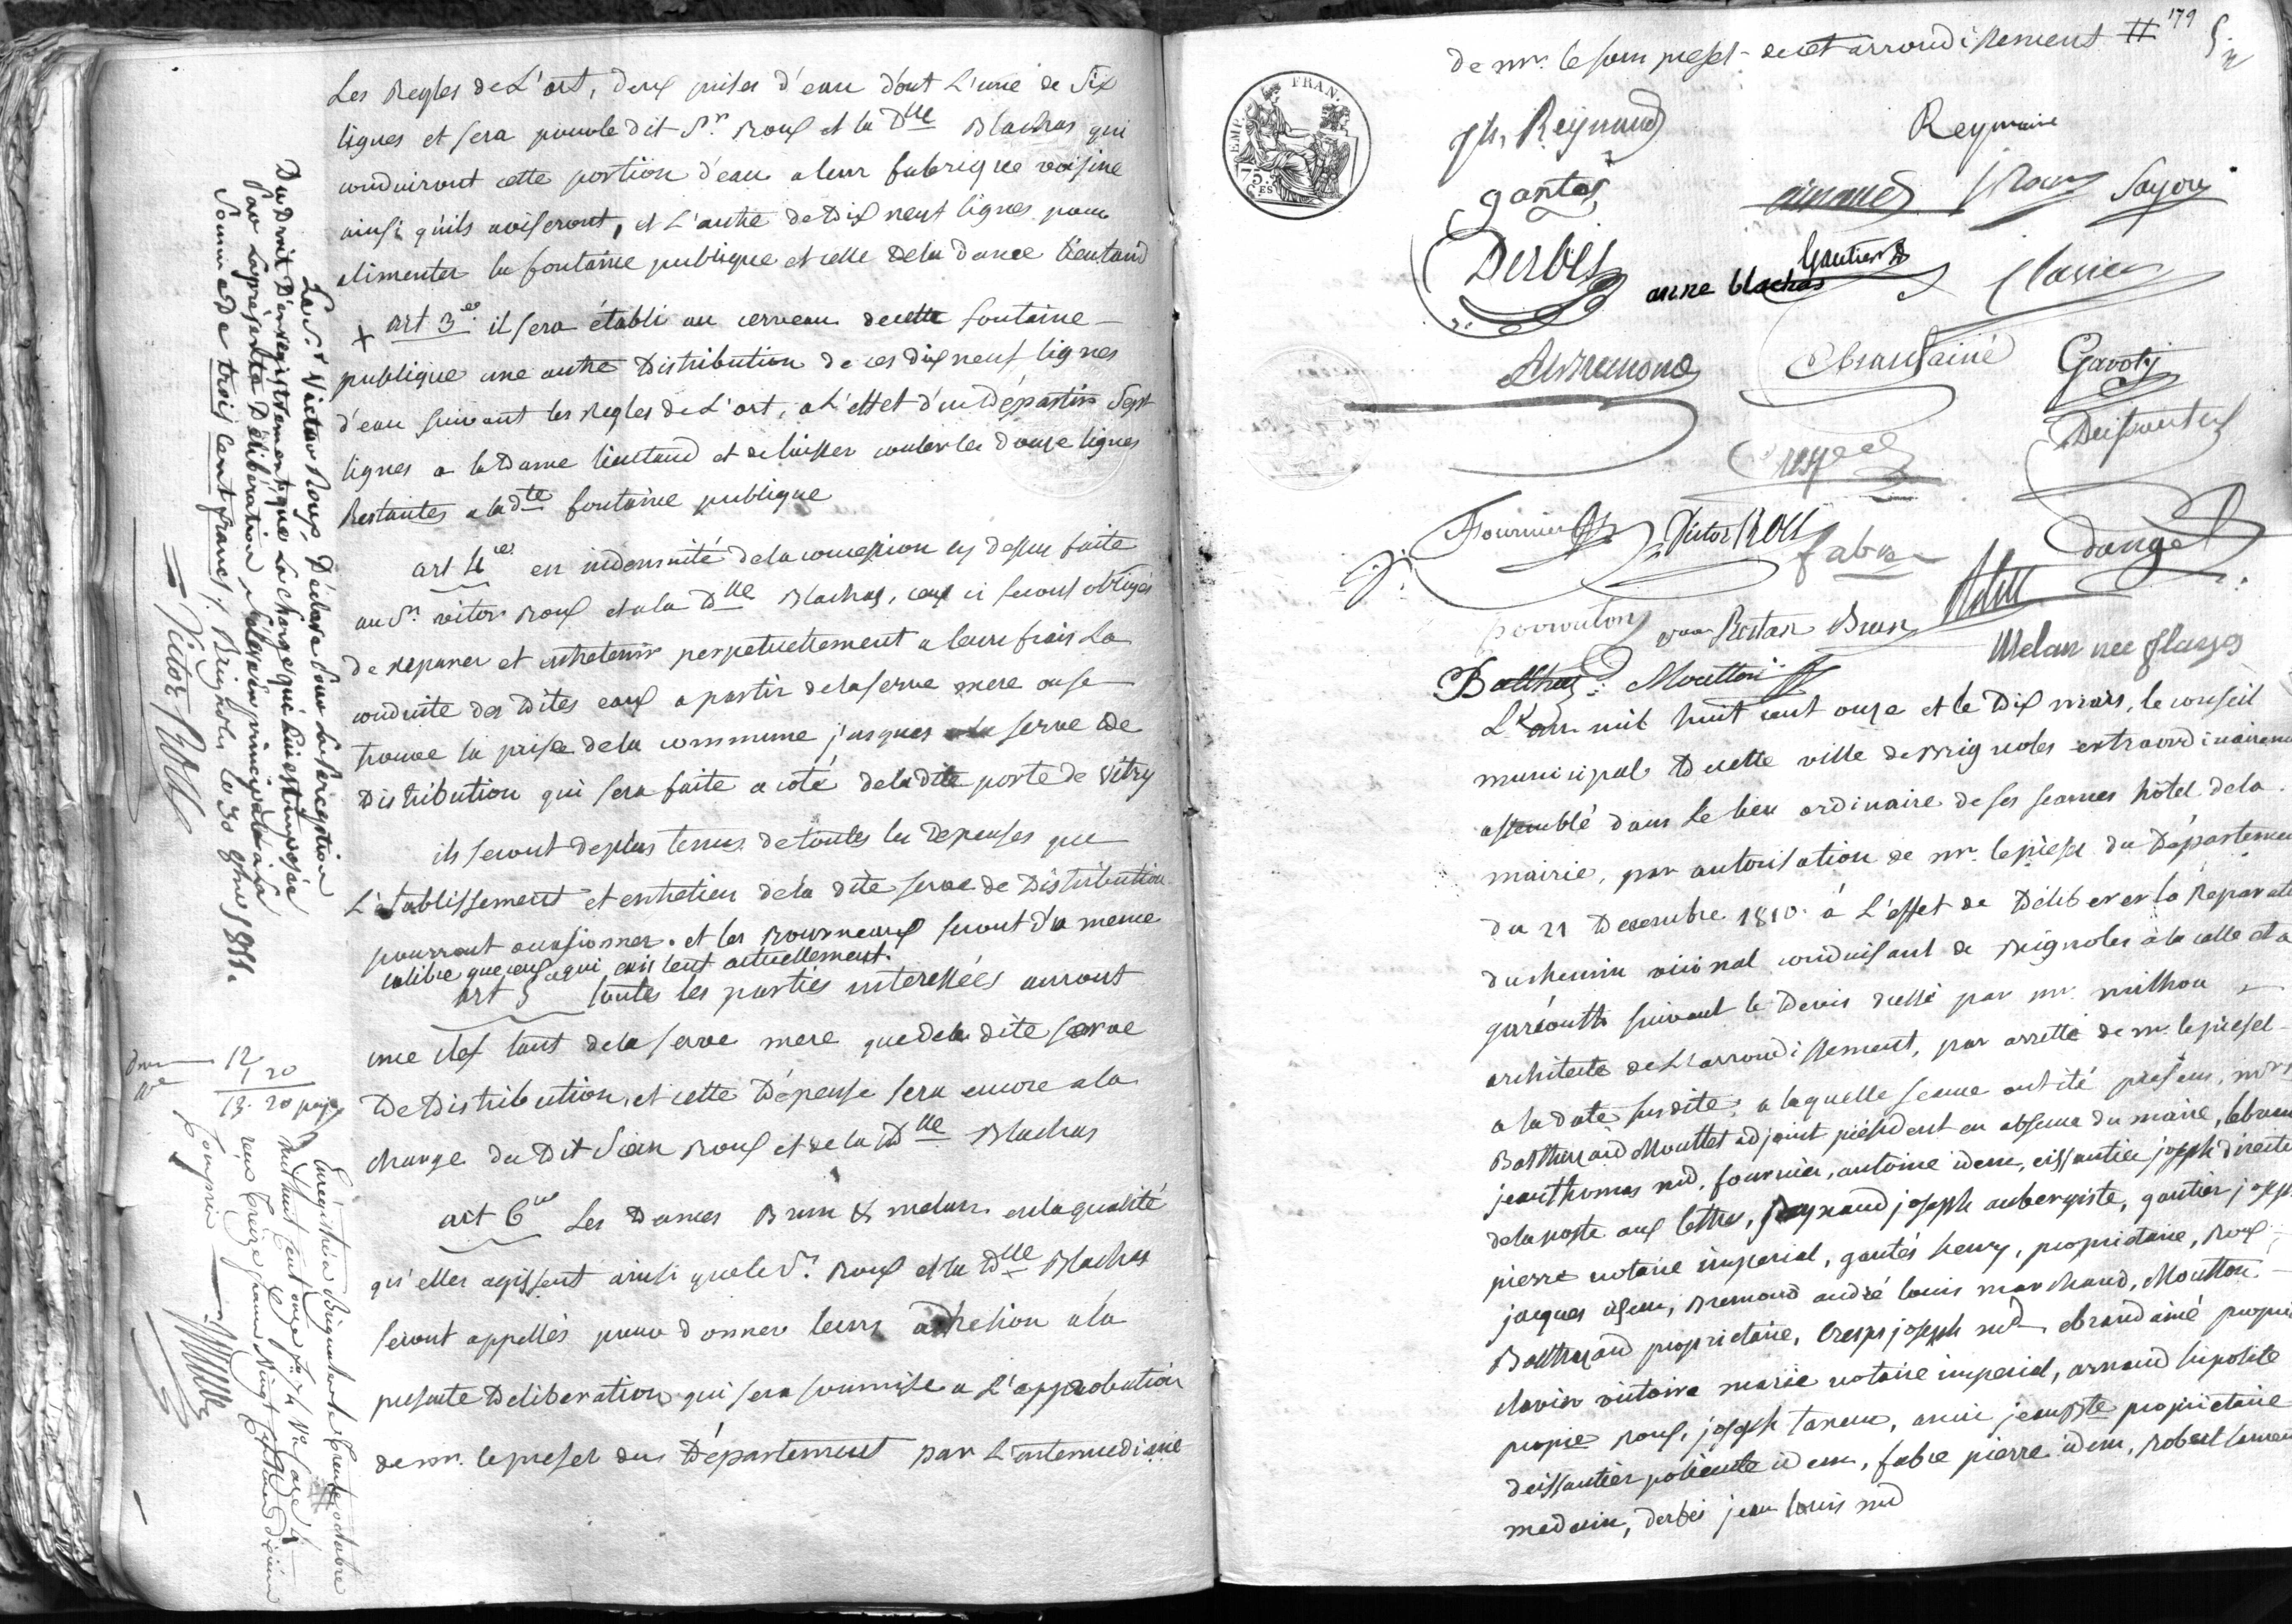 Les Regles de L'art, deux prises d'eau dont L'une de Six
lignes et sera pour le dit Sr. Roux et la Dlle Blachas qui
conduiront cette portion d'eau a leur fabrique voisine
ainsi qu'ils aviseront, et L'autre de dix neuf lignes pour
alimenter la fontaine publique et celle de la dame lieutaud
+ art 3e. il sera établi au cerveau de cette fontaine
publique une autre Distribution de ces dix neuf lignes
d'eau suivant les Regles de L'art, a L'effet d'en départir Sept
lignes a la dame lieutaud et de laisser couler les douze lignes
Restantes a la dte fontaine publique
art 4e en indemnité de la concession cy dessus faite
au Sr. victor Roux et a la Dlle Blachas, ceux ci seront obligés
de reparer et entretenir perpetuellement a leurs frais La
conduite des dites eaux a partir de la serve mere ou se
trouve la prise de la commune jusques a la serve de
Distribution qui sera faite a coté de la dite porte de Vitry
ils seront de plus tenus de toutes les depenses que
L'établissement et entretien de la dite serve de Distribution
pourront occasionner. et les Bourneaux seront du meme
calibre que ceux qui existent actuellement.
art 5 toutes les parties interessées auront
une clef tant de la serve mere que de la dite serve
De Distribution, et cette Dépense sera encore a la
charge du Dit Sieur Roux et de la Dlle Blachas
art 6e Les Dames Brun & melan en la qualité
qu'elles agissent ainsi que le Sr. Roux et la Dlle Blachas
seront appellés pour donner leurs adhesion a la
presente Deliberation qui sera soumise a L'approbation
de mr. le prefet du Département par L'intermediaire
Le Sr Victor Roux, Déclare Pour la Perception
Du Droit D'enregistrement que La charge qui lui est imposée
Par La présente Délibération s'élève en principal à la
Somme De trois Cent francs, Brignoles le 30 8bre 1811.
Victor ROUX
12
1 20
13. 20
Enregistré a Brignoles le trente octobre
mil huit Cent onze
reçu treize francs Vingt Centimes dixieme
Compris
179
de mr. le sous prefet de cet arrondissement
EMP. FRAN.
75. CES
Jh. Reynaud
Reynaud
gantes
Roux
Derbes
Gautier
anne blachas
Clavier
Bremond
Ebrard ainé
Gavoty
Crespe
Fournier
Victor ROUX
fabre
Rostan Brun
Melan née
Balthazard Moutton
L'an mil huit cent onze et le Dix mars, le conseil
municipal de cette ville de Brignoles extraordinairement
assemblé dans le lieu ordinaire de ses seances hôtel de la
mairie, par autorisation de mr. le prefet du Département
du 21 Decembre 1810. à L'effet de Deliberer la Reparation
du chemin vicinal conduisant de Brignoles à la celle et a
garéoult suivant le Devis dressé par mr. milhou
architecte de L'arrondissement, par arretté de mr. le prefet
a la date susdite, a laquelle seance ont été presens, mrs
Balthazard Mouttet adjoint président en absence du maire, lebrun
jean thomas nd, fournier, antoine idem, eissautier joseph directeur
de la poste aux lettres, Reynaud joseph aubergiste, gautier joseph
pierre notaire imperial, gantés henry, proprietaire, Roux
jacques idem, Bremond andré louis marchand, Moutton
Balthazard proprietaire, Crespe joseph nd, ebrard ainé proprie
clavier victoire marie notaire imperial, arnaud hipolite
proprie Roux, joseph proprietaire
deissautier idem, fabre pierre idem, Robert
medecin, derbès jean louis nd